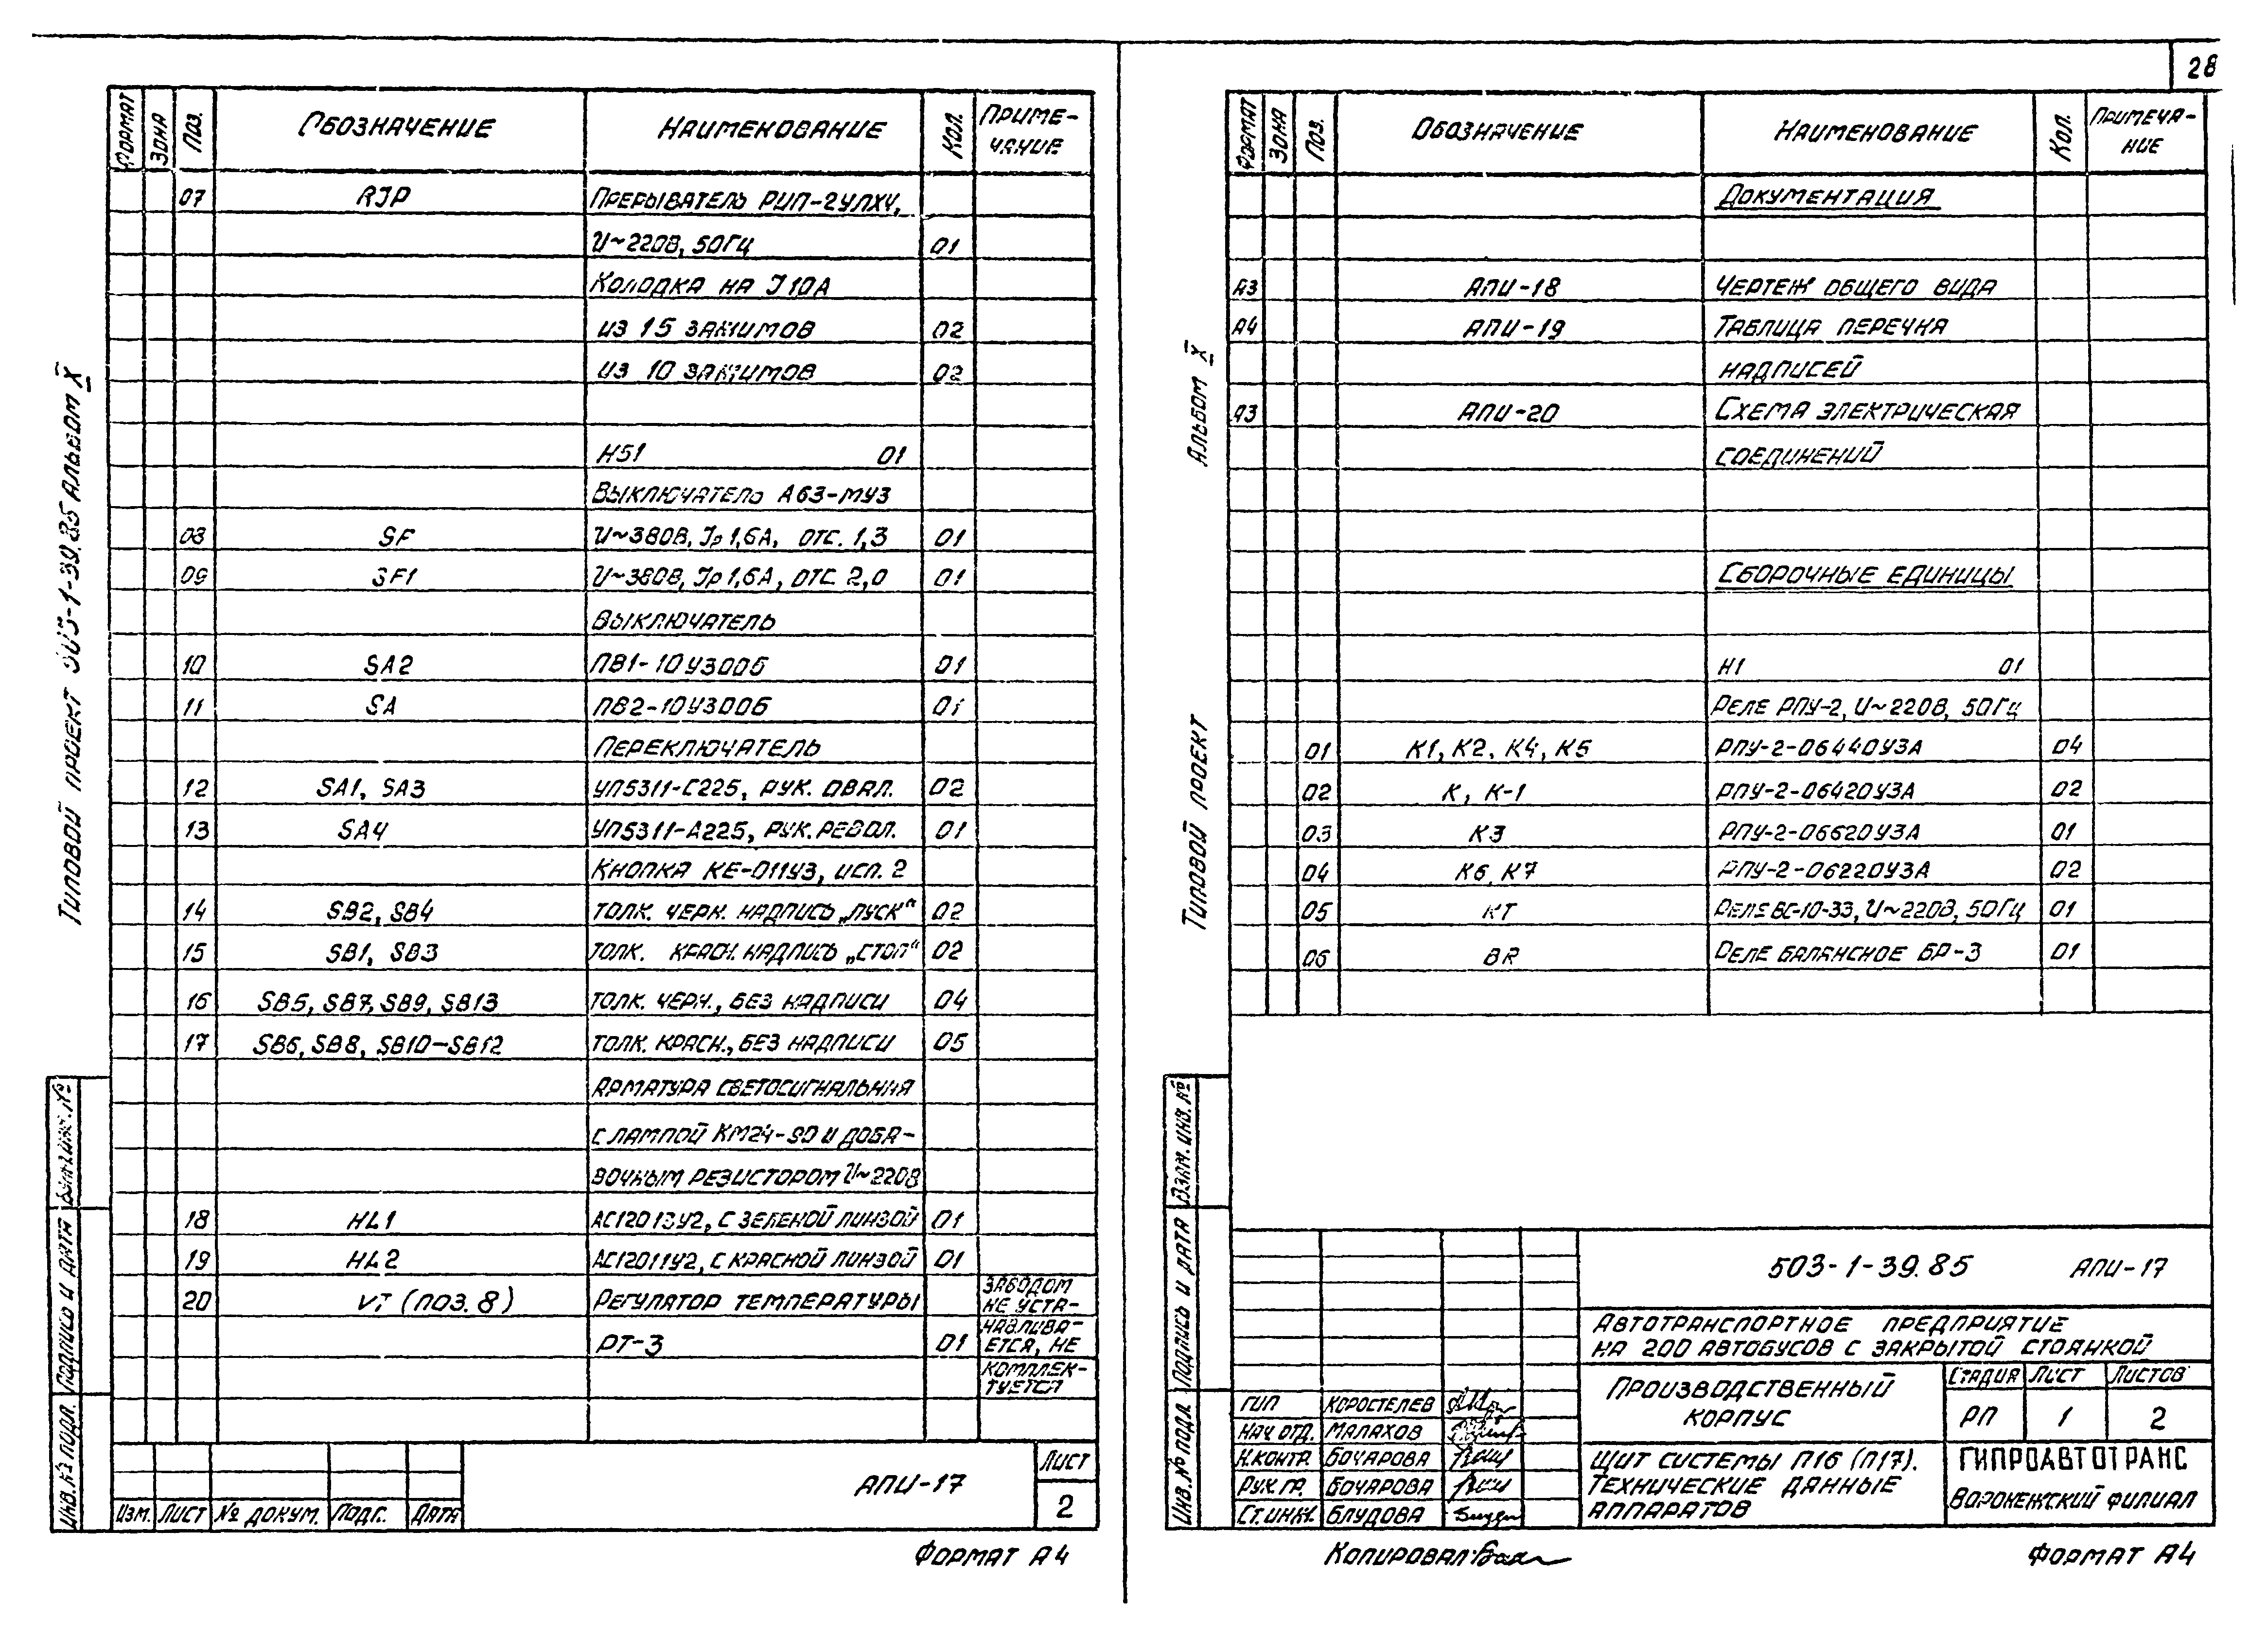 28
ФОРМАТ ЗОНА ПОЗ. ОБОЗНАЧЕНИЕ НАИМЕНОВАНИЕ КОЛ. ПРИМЕ-
ЧАНИЕ
07 RJP ПРЕРЫВАТЕЛЬ РИП-2УЛХ4,
U~220В, 50ГЦ 01
КОЛОДКА НА J 10А
ИЗ 15 ЗАЖИМОВ 02
ИЗ 10 ЗАЖИМОВ 02
Н51 01
ВЫКЛЮЧАТЕЛЬ А63-МУ3
08 SF U~380В, Jр 1,6А, ОТС. 1,3 01
09 SF1 U~380В, Jр 1,6А, ОТС 2,0 01
ВЫКЛЮЧАТЕЛЬ
10 SA2 ПВ1-10У300Б 01
11 SA ПВ2-10У300Б 01
ПЕРЕКЛЮЧАТЕЛЬ
12 SA1, SA3 УП5311-С225, РУК. ОВАЛ. 02
13 SA4 УП5311-А225, РУК. РЕВОЛ. 01
КНОПКА КЕ-011У3, ИСП. 2
14 SB2, SB4 ТОЛК. ЧЕРН. НАДПИСЬ „ПУСК“ 02
15 SB1, SB3 ТОЛК. КРАСН. НАДПИСЬ „СТОП“ 02
16 SB5, SB7, SB9, SB13 ТОЛК. ЧЕРН., БЕЗ НАДПИСИ 04
17 SB6, SB8, SB10-SB12 ТОЛК. КРАСН., БЕЗ НАДПИСИ 05
АРМАТУРА СВЕТОСИГНАЛЬНАЯ
С ЛАМПОЙ КМ24-90 И ДОБА-
ВОЧНЫМ РЕЗИСТОРОМ U~220В
18 HL1 АС12013У2, С ЗЕЛЕНОЙ ЛИНЗОЙ 01
19 HL2 АС12011У2, С КРАСНОЙ ЛИНЗОЙ 01
20 VT (ПОЗ. 8) РЕГУЛЯТОР ТЕМПЕРАТУРЫ
РТ-3 01
ЗАВОДОМ
НЕ УСТА-
НАВЛИВА-
ЕТСЯ, НЕ
КОМПЛЕК-
ТУЕТСЯ
ТИПОВОЙ ПРОЕКТ 503-1-39.85 АЛЬБОМ X
ВЗАМ. ИНВ. №
ПОДПИСЬ И ДАТА
ИНВ. № ПОДЛ.
ИЗМ. ЛИСТ № ДОКУМ. ПОДП. ДАТА
АПИ-17
ЛИСТ
2
ФОРМАТ А4
ФОРМАТ ЗОНА ПОЗ. ОБОЗНАЧЕНИЕ НАИМЕНОВАНИЕ КОЛ. ПРИМЕЧА-
НИЕ
ДОКУМЕНТАЦИЯ
А3 АПИ-18 ЧЕРТЕЖ ОБЩЕГО ВИДА
А4 АПИ-19 ТАБЛИЦА ПЕРЕЧНЯ
НАДПИСЕЙ
А3 АПИ-20 СХЕМА ЭЛЕКТРИЧЕСКАЯ
СОЕДИНЕНИЙ
СБОРОЧНЫЕ ЕДИНИЦЫ
Н1 01
РЕЛЕ РПУ-2, U~220В, 50ГЦ
01 К1, К2, К4, К5 РПУ-2-06440У3А 04
02 К, К-1 РПУ-2-06420У3А 02
03 К3 РПУ-2-06620У3А 01
04 К6, К7 РПУ-2-06220У3А 02
05 КТ РЕЛЕ ВС-10-33, U~220В, 50ГЦ 01
06 BR РЕЛЕ БАЛАНСНОЕ БР-3 01
АЛЬБОМ X
ТИПОВОЙ ПРОЕКТ
ВЗАМ. ИНВ. №
ПОДПИСЬ И ДАТА
ИНВ. № ПОДЛ.
503-1-39.85 АПИ-17
АВТОТРАНСПОРТНОЕ ПРЕДПРИЯТИЕ
НА 200 АВТОБУСОВ С ЗАКРЫТОЙ СТОЯНКОЙ
ПРОИЗВОДСТВЕННЫЙ
КОРПУС
СТАДИЯ ЛИСТ ЛИСТОВ
РП 1 2
ГИП КОРОСТЕЛЕВ
НАЧ. ОТД. МАЛАХОВ
Н. КОНТР. БОЧАРОВА
РУК. ГР. БОЧАРОВА
СТ. ИНЖ. БЛУДОВА
ЩИТ СИСТЕМЫ П16 (П17).
ТЕХНИЧЕСКИЕ ДАННЫЕ
АППАРАТОВ
ГИПРОАВТОТРАНС
ВОРОНЕЖСКИЙ ФИЛИАЛ
КОПИРОВАЛ:
ФОРМАТ А4